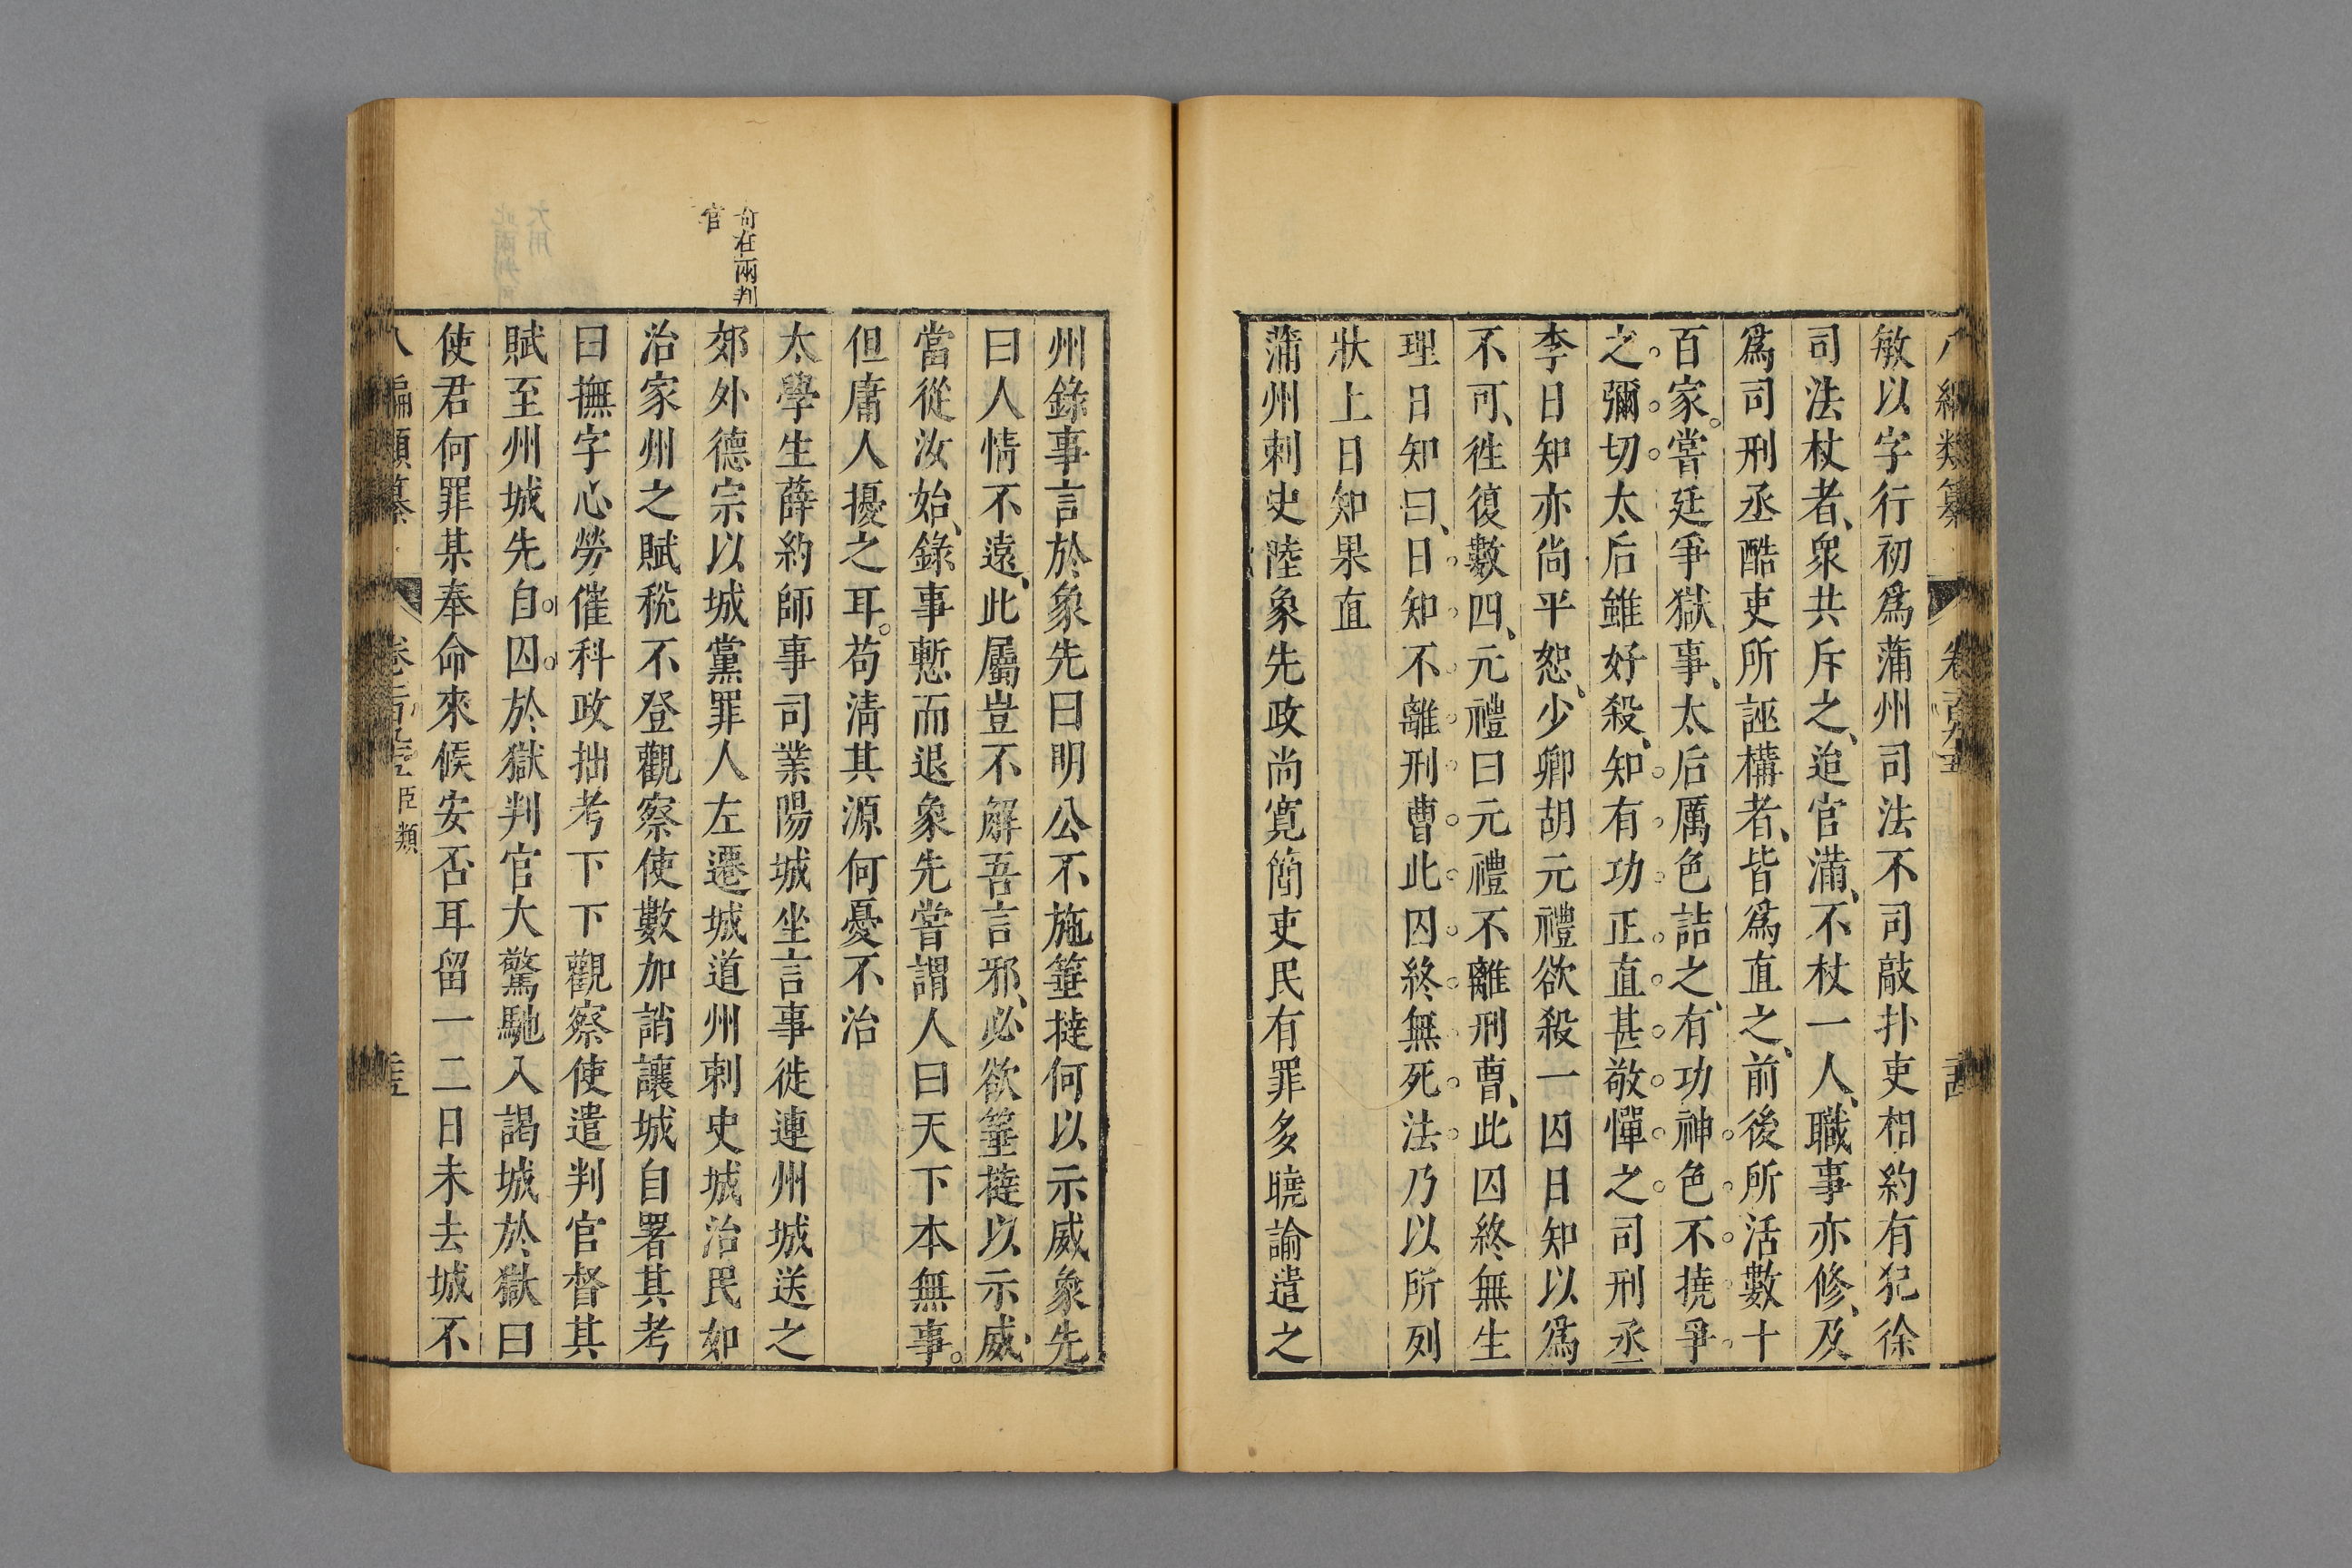 敏以字行初爲蒲州司法不司敲扑吏相約有犯徐
司法杖者、衆共斥之、迨官滿、不杖一人、職事亦修、及
爲司刑丞酷吏所誣構者、皆爲直之、前後所活數十
百家。嘗廷爭獄事、太后厲色詰之、有功神色不撓爭
之彌切太后雖好殺、知有功正直甚敬憚之司刑丞
李日知亦尚平恕、少卿胡元禮欲殺一囚日知以爲
不可、徃復數四、元禮曰元禮不離刑曹、此囚終無生
理日知曰、日知不離刑曹此囚終無死法乃以所列
狀上日知果直
蒲州刺史陸象先政尚寛簡吏民有罪多曉諭遣之
州錄事言於象先曰明公不施箠撻何以示威象先
曰人情不遠、此屬豈不解吾言邪、必欲箠撻以示威、
當從汝始、錄事慙而退象先嘗謂人曰天下本無事。
但庸人擾之耳。苟淸其源何憂不治
奇在兩判
官
太學生薛約師事司業陽城坐言事徙連州城送之
郊外德宗以城黨罪人左遷城道州刺史城治民如
治家州之賦稅不登觀察使數加誚讓城自署其考
曰撫字心勞催科政拙考下下觀察使遣判官督其
賦至州城先自囚於獄判官大驚馳入謁城於獄曰
使君何罪某奉命來候安否耳留一二日未去城不
編類纂 臣類